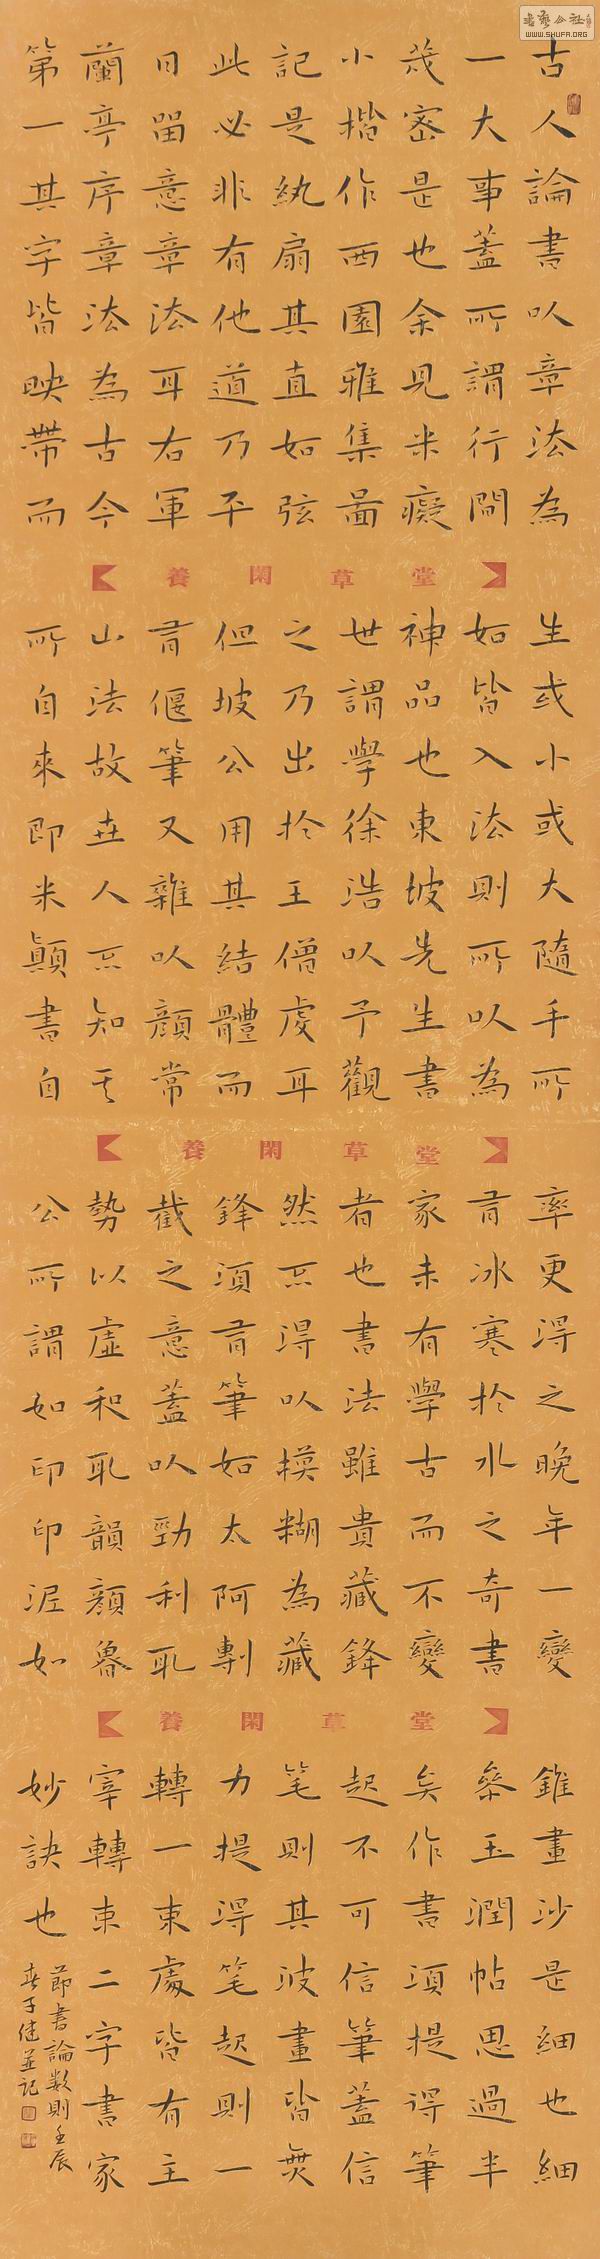 書藝公社
WWW.SHUFA.ORG
古人論書以章法為
一大事蓋所謂行間
茂密是也余見米癡
小楷作西園雅集圖
記是紈扇其直如弦
此必非有他道乃平
日留意章法耳右軍
蘭亭序章法為古今
第一其字皆映帶而
養閑草堂
生或小或大隨手所
如皆入法則所以為
神品也東坡先生書
世謂學徐浩以予觀
之乃出於王僧虔耳
但坡公用其結體而
有偃筆又雜以顏常
山法故世人不知其
所自來即米顛書自
養閑草堂
率更得之晚年一變
有冰寒於水之奇書
家未有學古而不變
者也書法雖貴藏鋒
然不得以模糊為藏
鋒須有筆如太阿剸
截之意蓋以勁利取
勢以虛和取韻顏魯
公所謂如印印泥如
養閑草堂
錐畫沙是細也細
參玉潤帖思過半
矣作書須提得筆
起不可信筆蓋信
笔則其波畫皆無
力提得笔起則一
轉一束處皆有主
宰轉束二字書家
妙訣也
節書論數則壬辰
春子健並記